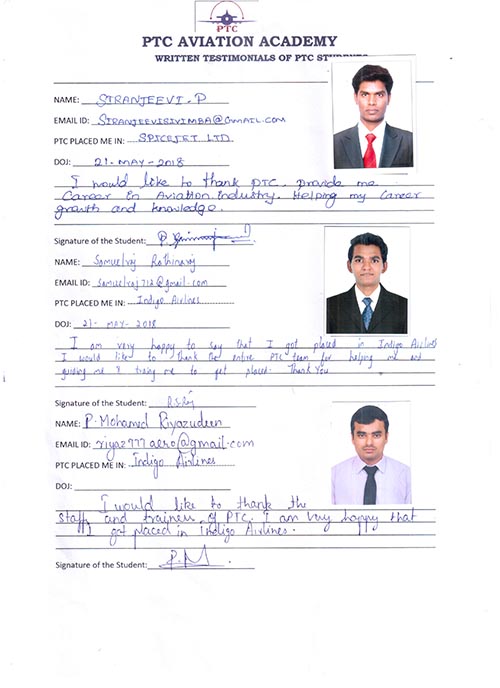 PTC
PTC AVIATION ACADEMY
WRITTEN TESTIMONIALS OF PTC STUDENTS
NAME: SIRANJEEVI.P
EMAIL ID: SIRANJEEVISIVIMBA@GMAIL.COM
PTC PLACED ME IN: SPICEJET LTD.
DOJ: 21-MAY-2018
I would like to thank PTC. Provide me
Career in Aviation Industry. Helping my Career
growth and knowledge.
Signature of the Student:
NAME: Samuelraj Rathinaraj
EMAIL ID: Samuelraj712@gmail.com
PTC PLACED ME IN: Indigo Airlines
DOJ: 21- MAY-2018
I am very happy to say that I got placed in Indigo Airlines
I would like to thank the entire PTC team for helping me and
guiding me & traing me to get placed. Thank You
Signature of the Student:
NAME: P. Mohamed Riyazudeen
EMAIL ID: riyaz777aero@gmail.com
PTC PLACED ME IN: Indigo Airlines
DOJ:
I would like to thank the
staff and trainers of PTC. I am very happy that
I got placed in Indigo Airlines.
Signature of the Student: P.M